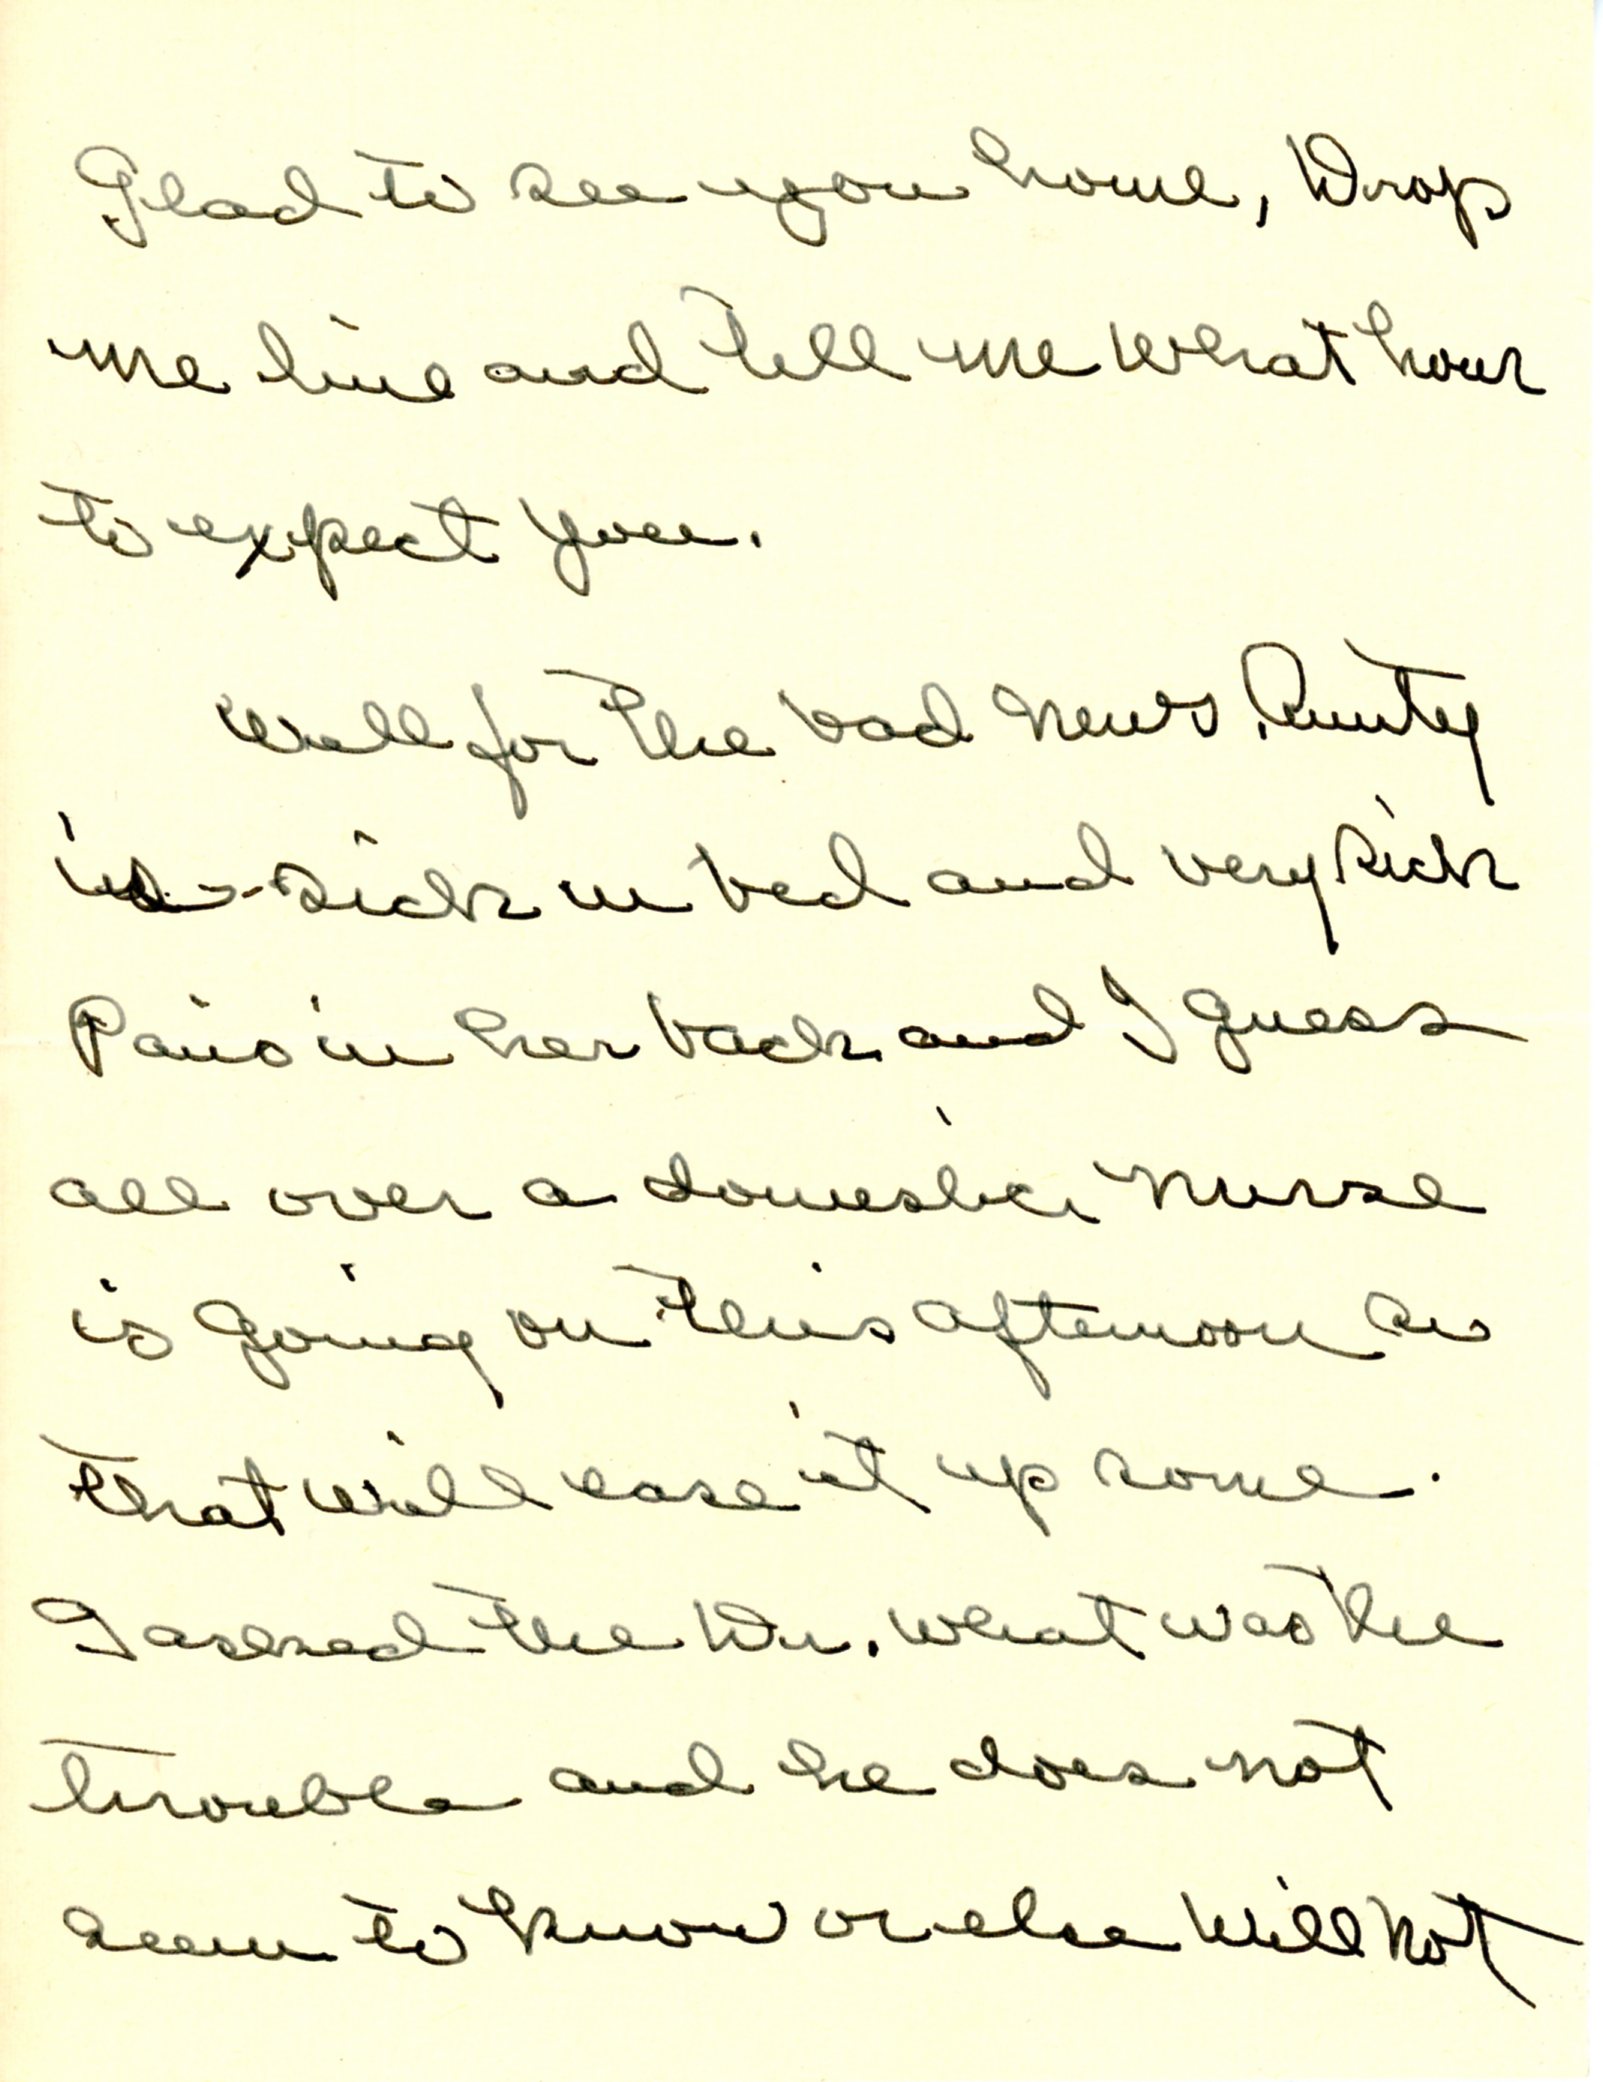 Glad to see you home, Drop
me line and tell me what hour
to expect you.
Well for the bad news. Aunty
is sick in bed and very sick
Pains in her back and I guess
all over a domestic nurse
is going on this afternoon so
that will ease it up some.
I asked the Dr. what was the
trouble and he does not
seem to know or else will not